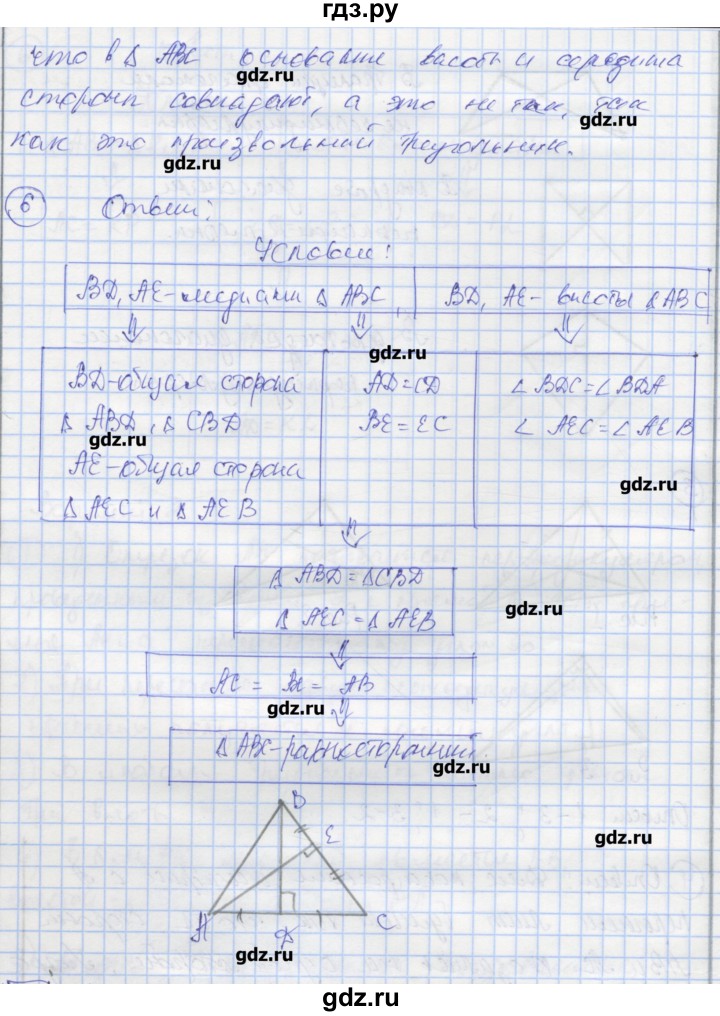 гдз.ру
что в Δ ABC основание высоты и середина
gdz.ru
стороны совпадают, а это не так, так
gdz.ru
как это произвольный треугольник.
gdz.ru
6 Ответ:
Условие:
BD, AE - медианы Δ ABC, BD, AE - высоты Δ ABC
⇓ ⇓ ⇓
gdz.ru
BD - общая сторона AD = CD ∠ BDC = ∠ BDA
Δ ABD, Δ CBD BE = EC ∠ AEC = ∠ AEB
gdz.ru
AE - общая сторона
gdz.ru
Δ AEC и Δ AEB
⇓
Δ ABD = Δ CBD
gdz.ru
Δ AEC = Δ AEB
⇓
AC = BC = AB
gdz.ru
⇓
Δ ABC - равносторонний.
gdz.ru
B
E
gdz.ru
A D C
gdz.ru
gdz.ru